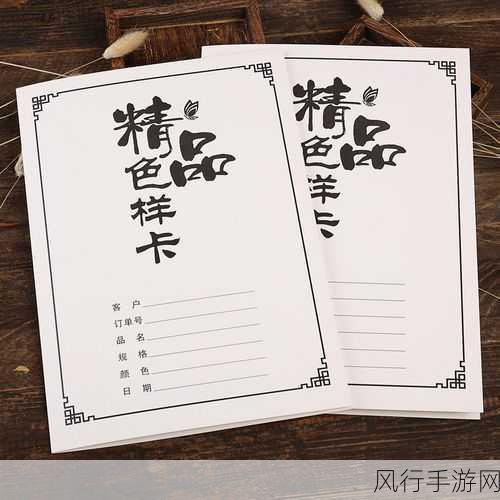 精品
色样卡
客 户
订单号
品 名
规 格
颜 色
日 期
精品
色样卡
风行手游网